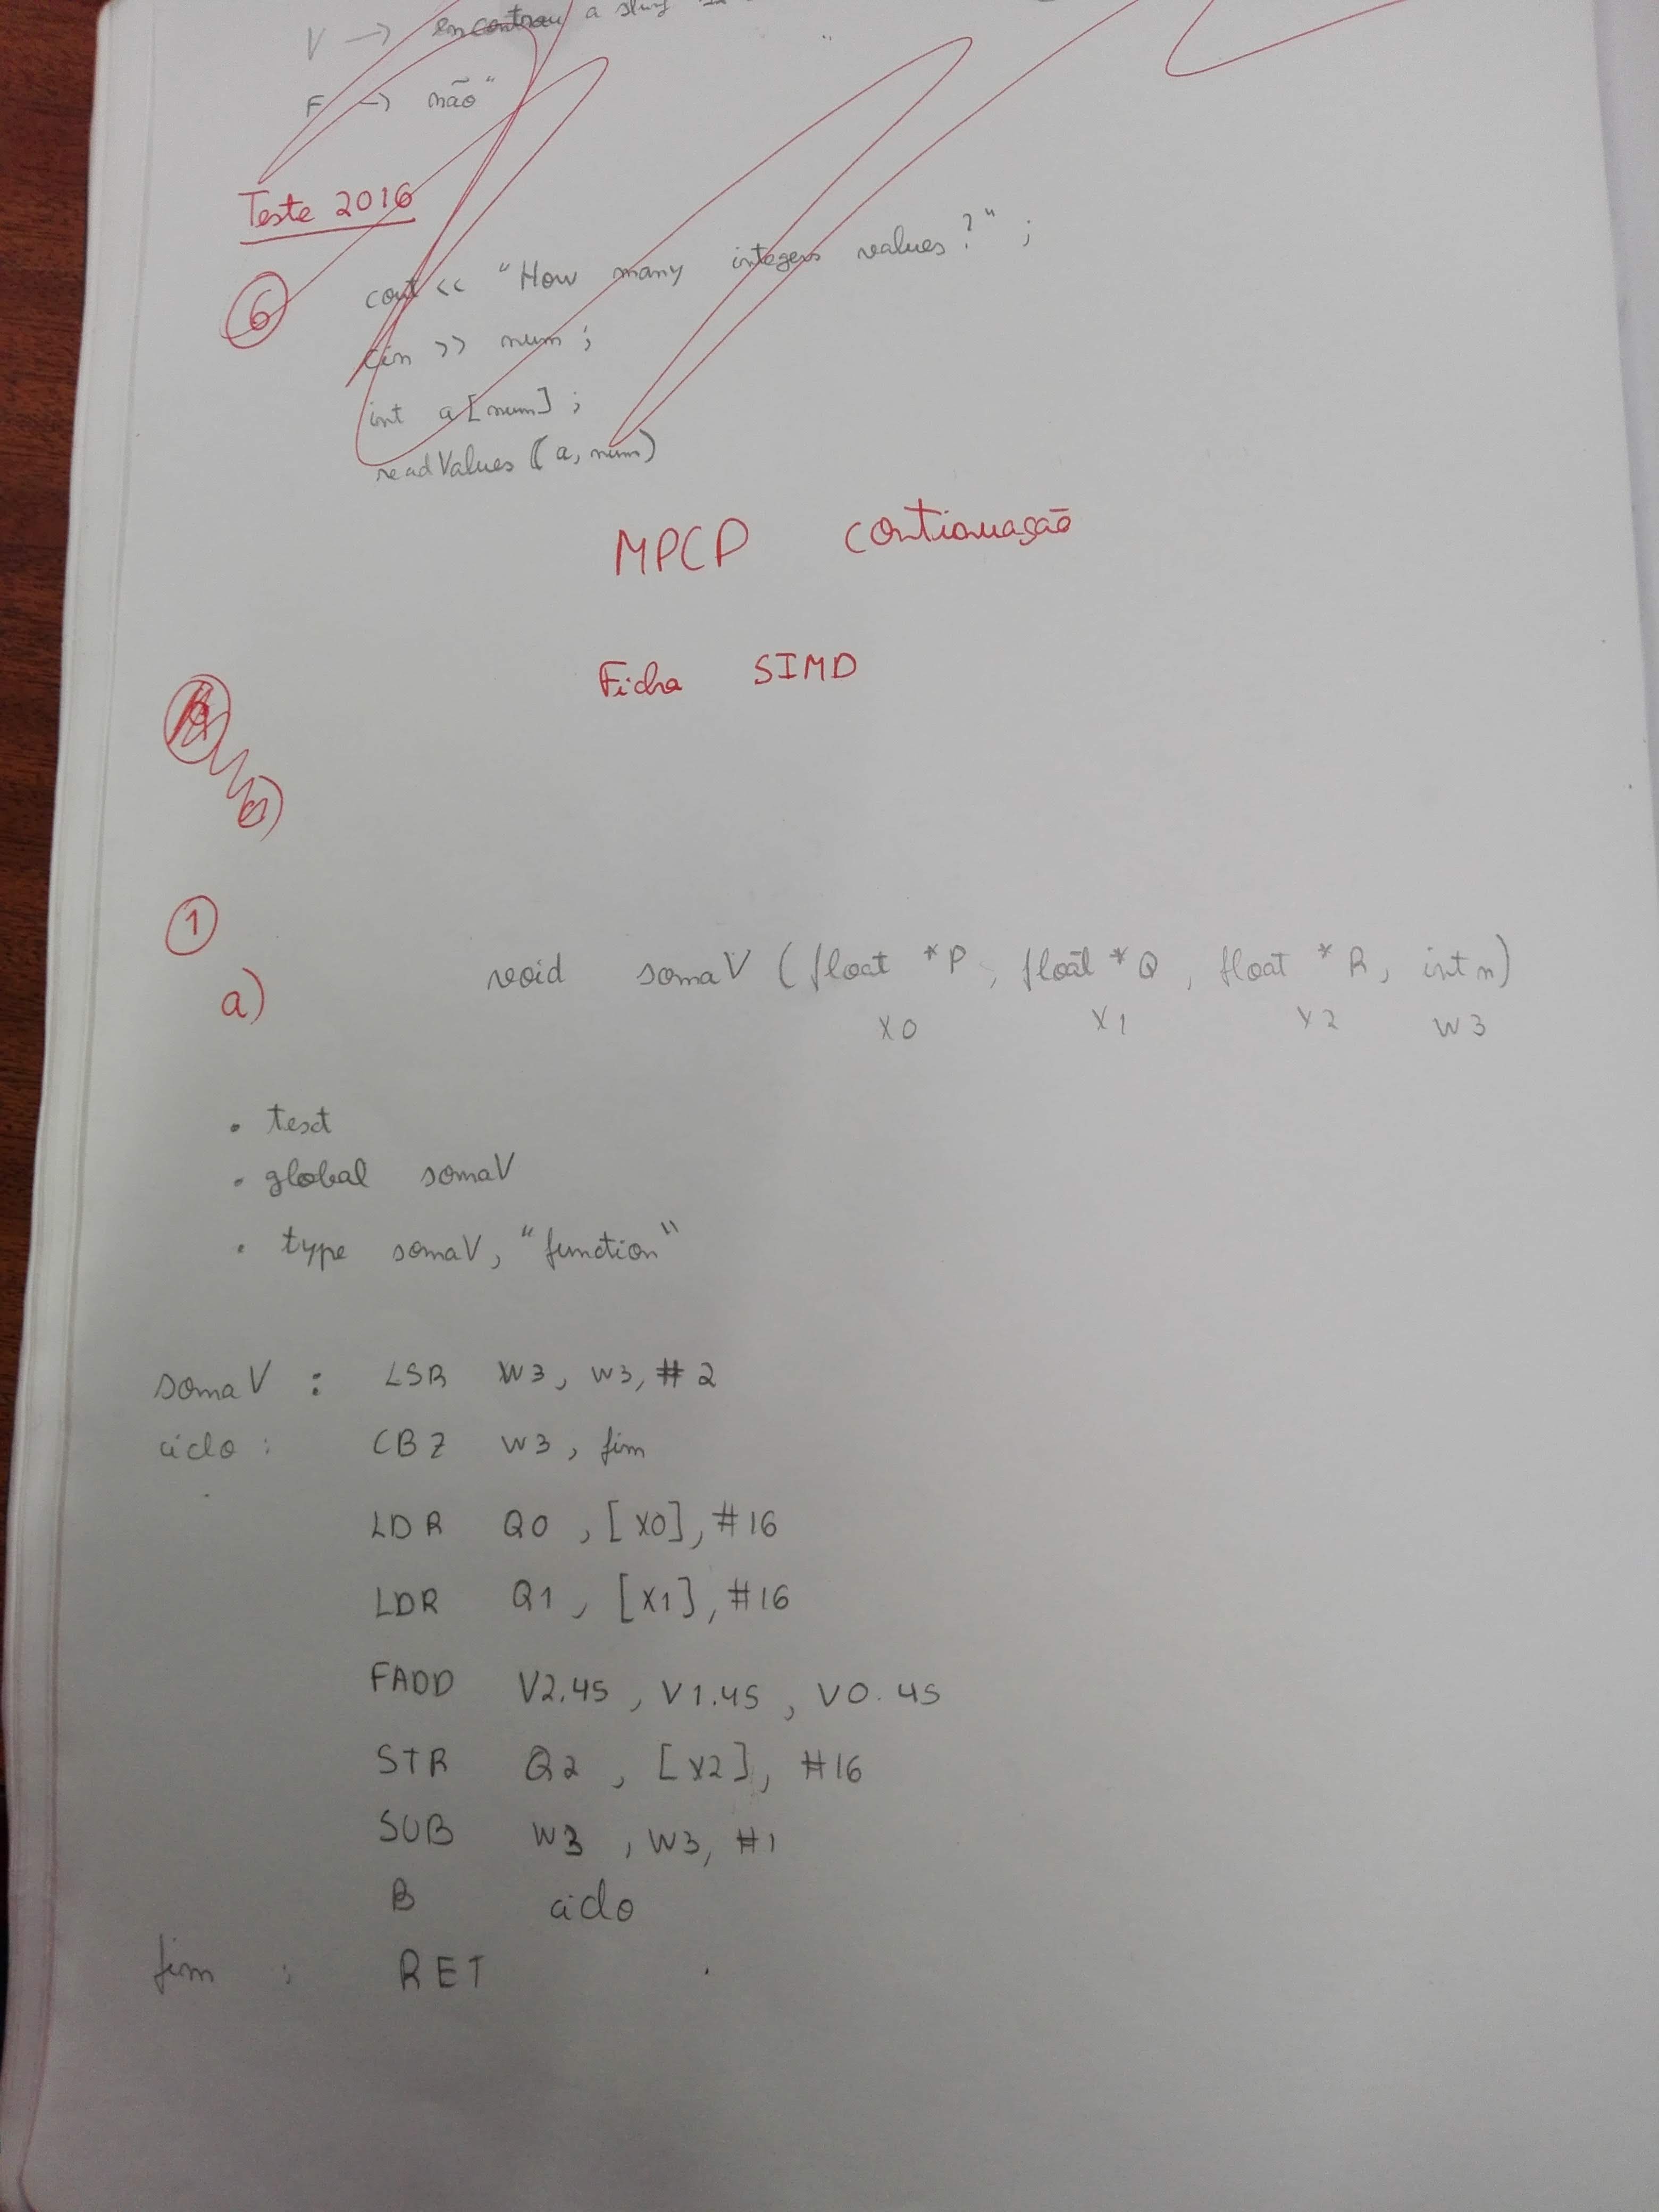 V → encontrou a
F → não"
Teste 2016
6 cout << "How many integers values?" ;
cin >> num ;
int a [num] ;
readValues (a, num)
MPCP continuação
Ficha SIMD
1
a) void somaV (float *P, float *Q, float *R, int n)
X0 X1 X2 W3
. text
. global somaV
. type somaV, "function"
somaV : LSR W3, W3, #2
ciclo : CBZ W3, fim
LDR Q0, [X0], #16
LDR Q1, [X1], #16
FADD V2.4S, V1.4S, V0.4S
STR Q2, [X2], #16
SUB W3, W3, #1
B ciclo
fim : RET